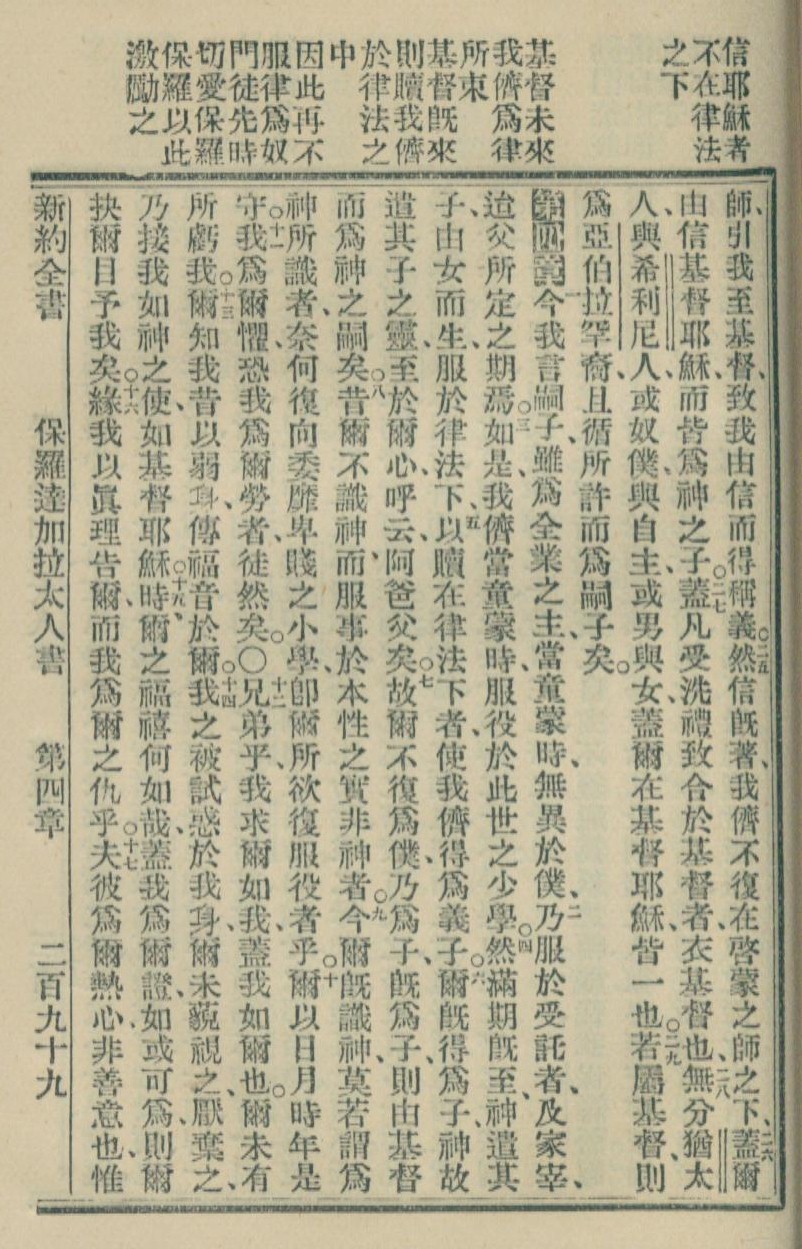 信耶穌者
不在律法
之下
基督未來
我儕爲律
所束
基督旣來
則贖我儕
於律法之
中
因此再不
服律爲奴
門徒先時
切愛保羅
保羅以此
激勵之
師、引我至基督、致我由信而得稱義○二五然信旣著、我儕不復在啓蒙之師之下、二六蓋爾
由信基督耶穌、而皆爲神之子○二七蓋凡受洗禮致合於基督者、衣基督也、二八無分猶太
人、與希利尼人、或奴僕、與自主、或男與女、蓋爾在基督耶穌、皆一也○二九若屬基督、則
爲亞伯拉罕裔、且循所許而爲嗣子矣○
第四章一今我言嗣子、雖爲全業之主、當童蒙時、無異於僕、二乃服於受託者、及家宰、
迨父所定之期焉○三如是、我儕當童蒙時、服役於此世之少學○四然滿期旣至、神遣其
子、由女而生、服於律法下、五以贖在律法下者、使我儕得爲義子○六爾旣得爲子、神故
遣其子之靈、至於爾心、呼云、阿爸父矣○七故爾不復爲僕、乃爲子、旣爲子、則由基督
而爲神之嗣矣○八昔爾不識神、而服事於本性之實非神者○九今爾旣識神、莫若謂爲
神所識者、奈何復向委靡卑賤之小學、卽爾所欲復服役者乎○十爾以日月時年是
守○十一我爲爾懼、恐我爲爾勞者、徒然矣○〇十二兄弟乎、我求爾如我、蓋我如爾也○爾未有
所虧我○十三爾知我昔以弱身、傳福音於爾○十四我之被試惑於我身、爾未藐視之、厭棄之、
乃接我如神之使、如基督耶穌○十五時爾之福禧何如哉、蓋我爲爾證、如或可爲、則爾
抉爾目予我矣○十六緣我以眞理告爾、而我爲爾之仇乎○十七夫彼爲爾熱心、非善意也、惟
新約全書 保羅達加拉太人書 第四章 二百九十九